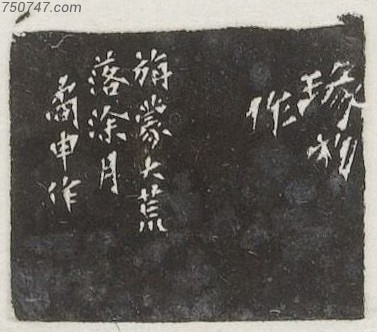 初
作
旃蒙大荒
落涂月
申作
750747.com